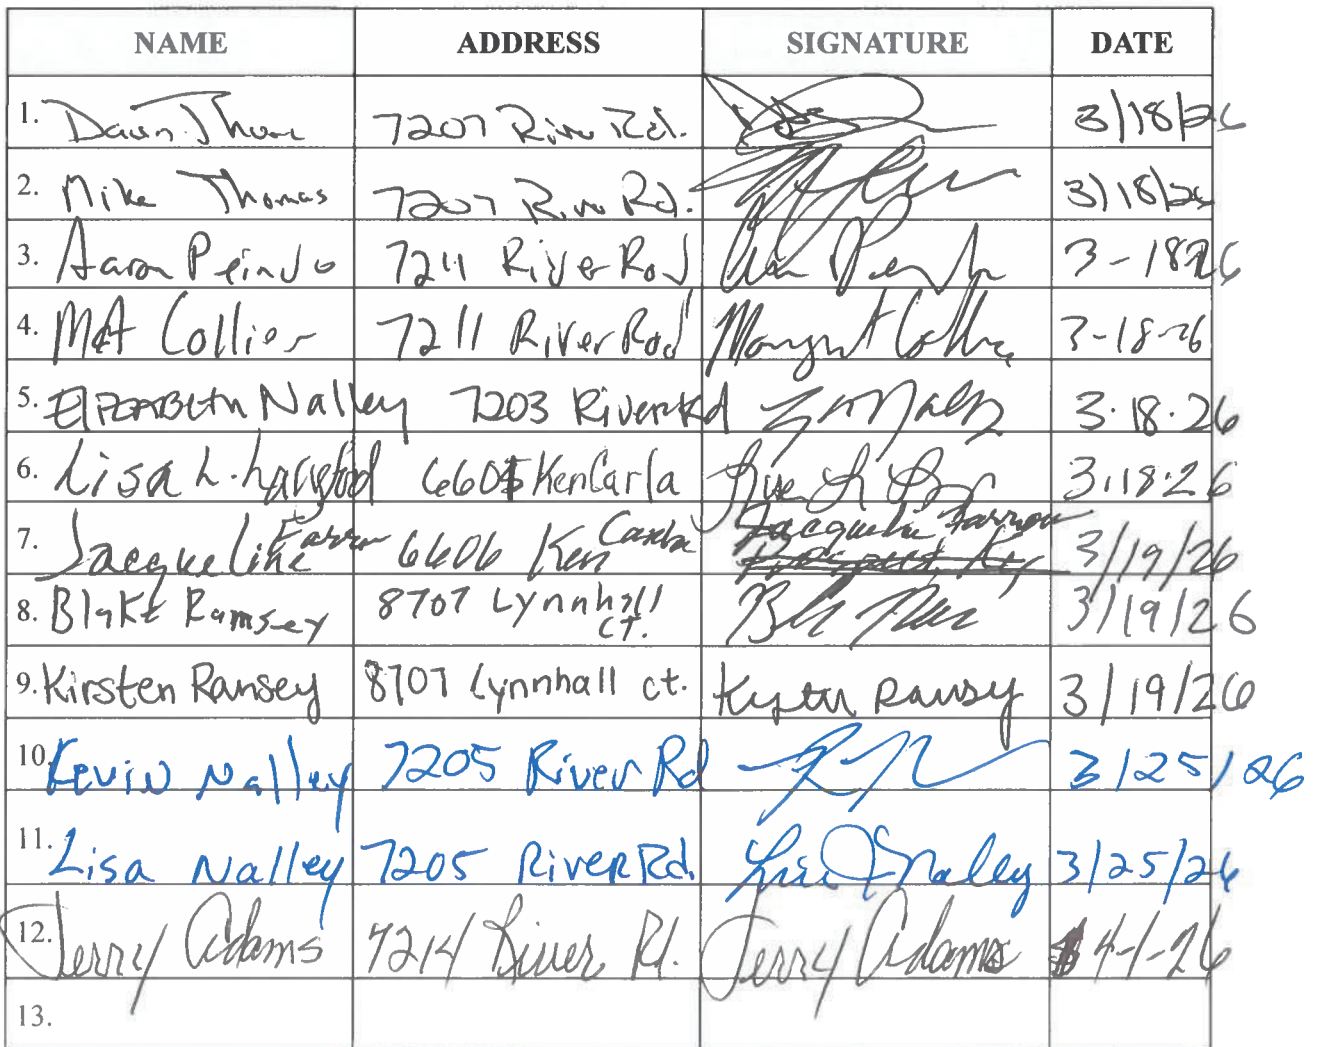 NAME ADDRESS SIGNATURE DATE
1. Dawn Thomas 7207 River Rd. 3/18/26
2. Mike Thomas 7207 River Rd. 3/18/26
3. Aaron Peindo 7211 River Rod 3-18-26
4. Mat Collier 7211 River Rod Margaret Collier 3-18-26
5. ElizABEth Nalley 7203 River Rd 3.18.26
6. Lisa L. Langford 6605 KenCarla 3.18.26
7. Jacqueline Farrow 6606 Ken Carla Jacqueline Farrow 3/19/26
8. Blake Ramsey 8707 Lynnhall CT. 3/19/26
9. Kirsten Ramsey 8707 Lynnhall ct. Kirsten Ramsey 3/19/26
10. Kevin Nalley 7205 River Rd 3/25/26
11. Lisa Nalley 7205 River Rd. Lisa J Nalley 3/25/26
12. Jerry Adams 7214 River Rd. Jerry Adams 4-1-26
13.